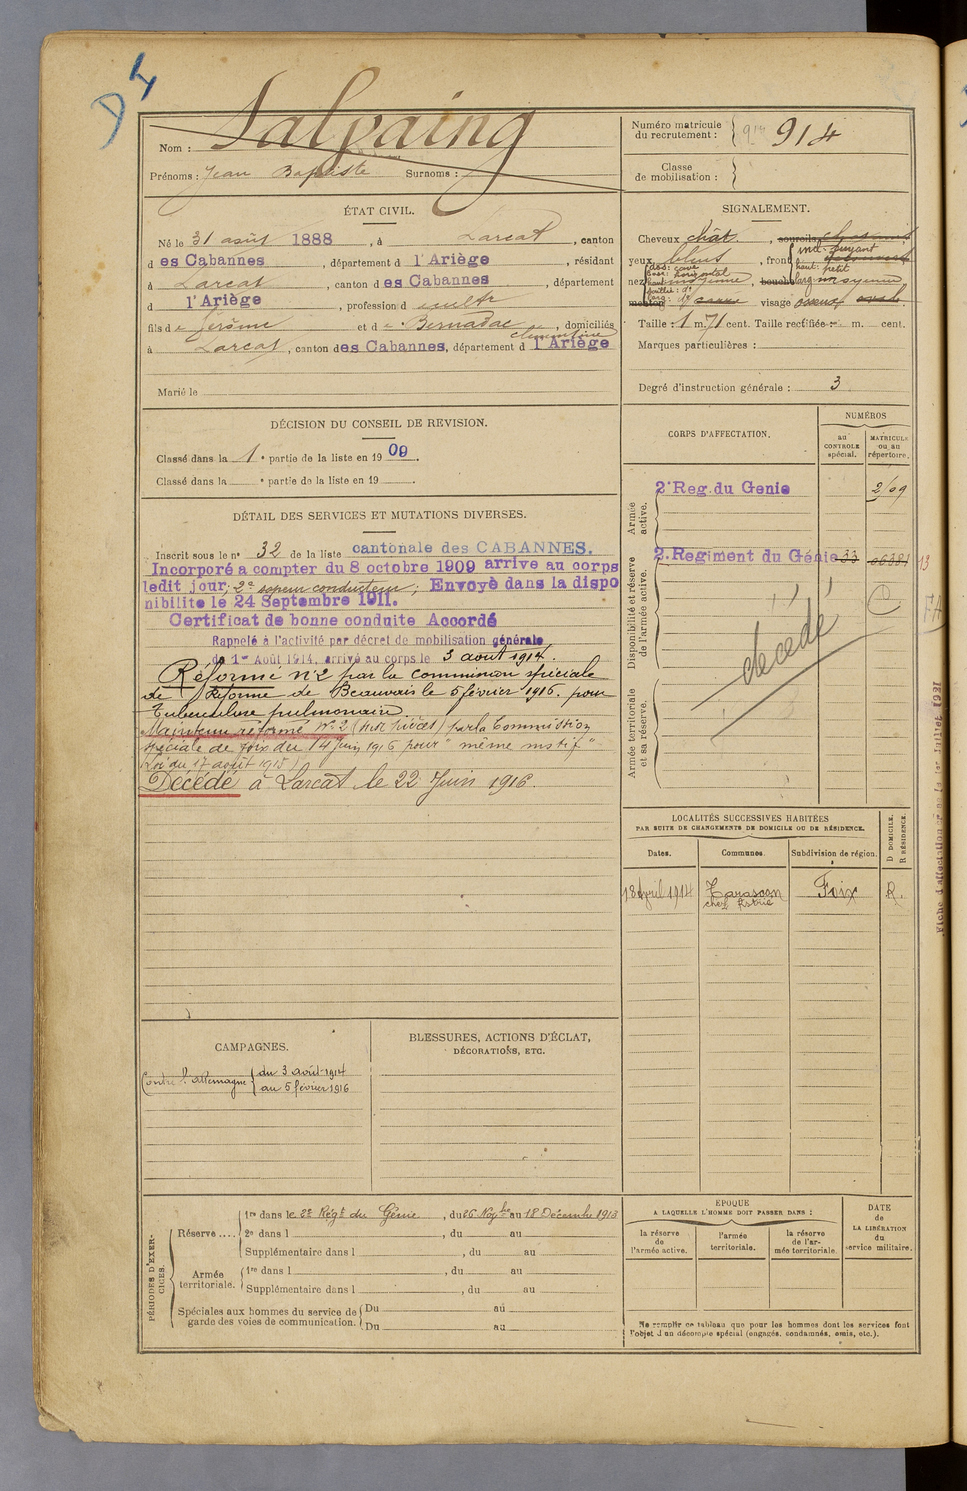 D4
Nom : Salvaing
Prénoms : Jean Baptiste Surnoms :
Numéro matricule du recrutement : 914
Classe de mobilisation :
ÉTAT CIVIL.
Né le 31 août 1888, à Larcat, canton
d es Cabannes, département d l'Ariège, résidant
à Larcat, canton d es Cabannes, département
d l'Ariège, profession d cultr
fils de Jérôme et de Bernadac Clémentine, domiciliés
à Larcat, canton des Cabannes, département d l'Ariège
Marié le
SIGNALEMENT.
Cheveux chât. , sourcils
yeux bleus , front incl: fuyant
haut: petit
nez dos: cave
base: horizontal
bouche larg: moyenne
menton visage osseux ovale
Taille : 1 m. 71 cent. Taille rectifiée : m. cent.
Marques particulières :
Degré d'instruction générale : 3
DÉCISION DU CONSEIL DE REVISION.
Classé dans la 1e partie de la liste en 1909.
Classé dans la e partie de la liste en 19 .
DÉTAIL DES SERVICES ET MUTATIONS DIVERSES.
Inscrit sous le no 32 de la liste cantonale des CABANNES.
Incorporé a compter du 8 octobre 1909 arrive au corps
ledit jour, 2e sapeur conducteur; Envoyé dans la dispo
nibilite le 24 Septembre 1911.
Certificat de bonne conduite Accordé
Rappelé à l'activité par décret de mobilisation générale
du 1er Août 1914, arrivé au corps le 3 août 1914.
Réformé n°2 par la commission spéciale
de Réforme de Beauvais le 5 février 1916 pour
Tuberculose pulmonaire
Maintenu réformé No 2 par la Commission
spéciale de Foix du 14 Juin 1916 pour "même motif"
(Loi du 17 août 1915)
Décédé à Larcat le 22 Juin 1916.
CORPS D'AFFECTATION.
NUMÉROS
au CONTROLE spécial.
MATRICULE ou au répertoire.
Armée active.
2e Reg. du Genie 2/09
Disponibilité et réserve de l'armée active.
2. Regiment du Génie 33 13
décédé
Armée territoriale et sa réserve.
Fiche d'affectation
LOCALITÉS SUCCESSIVES HABITÉES
PAR SUITE DE CHANGEMENTS DE DOMICILE OU DE RÉSIDENCE.
Dates. Communes. Subdivision de région. D DOMICILE. R RÉSIDENCE.
18 April 1914 Tarascon Foix R.
chez Astrié
CAMPAGNES.
Contre l'allemagne du 3 août 1914
au 5 février 1916
BLESSURES, ACTIONS D'ÉCLAT,
DÉCORATIONS, ETC.
PÉRIODES D'EXERCICES.
Réserve .... 1re dans le 2e Régt du Génie, du 26 Novbre au 18 Décembre 1913
2e dans l , du au
Supplémentaire dans l , du au
Armée territoriale. 1re dans l , du au
Supplémentaire dans l , du au
Spéciales aux hommes du service de garde des voies de communication. Du au
Du au
EPOQUE
A LAQUELLE L'HOMME DOIT PASSER DANS :
la réserve de l'armée active.
l'armée territoriale.
la réserve de l'armée territoriale.
DATE de LA LIBÉRATION du service militaire.
Ne remplir ce tableau que pour les hommes dont les services font
l'objet d'un décompte spécial (engagés, condamnés, omis, etc.).